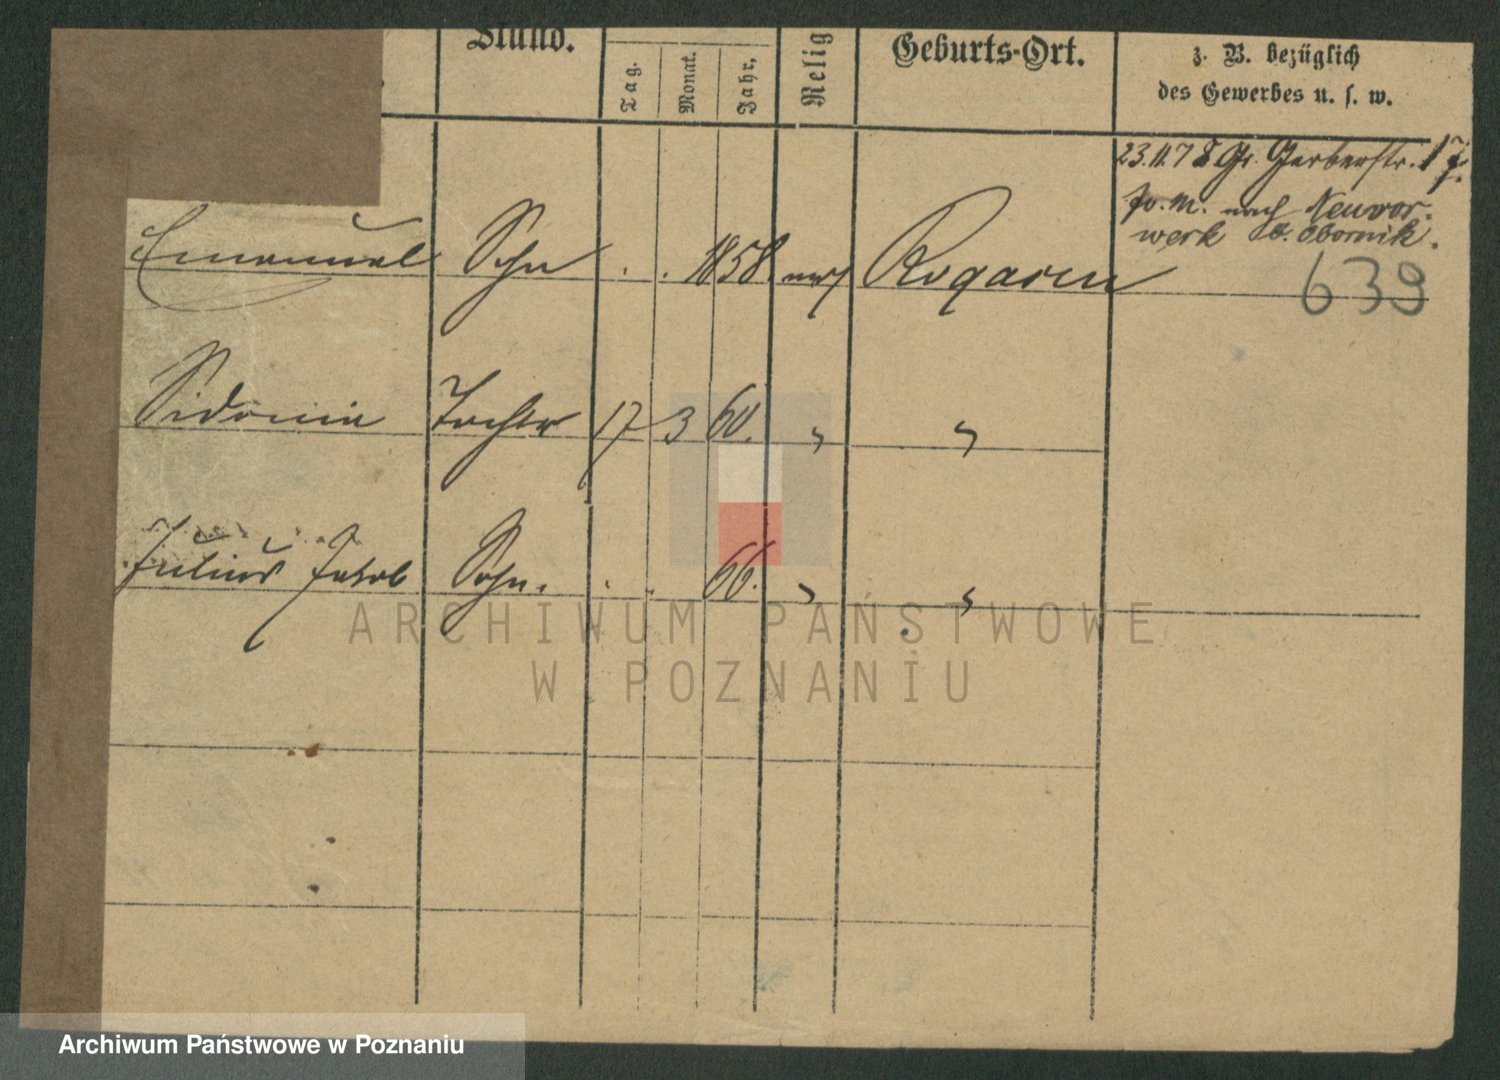 Stand. Relig Geburts-Ort. z. B. bezüglich
Tag. Monat. Jahr. des Gewerbes u. s. w.
23.11.78 Gr. Gerberstr. 17.
fv. m. nach Neuvor-
werk b. Obornik.
Emanuel Sohn . . 1858. mos Rogasen
639
Sidonie Tochter 17 3 60. " "
Julius Jakob Sohn. . . 66. " "
ARCHIWUM PAŃSTWOWE
W POZNANIU
Archiwum Państwowe w Poznaniu